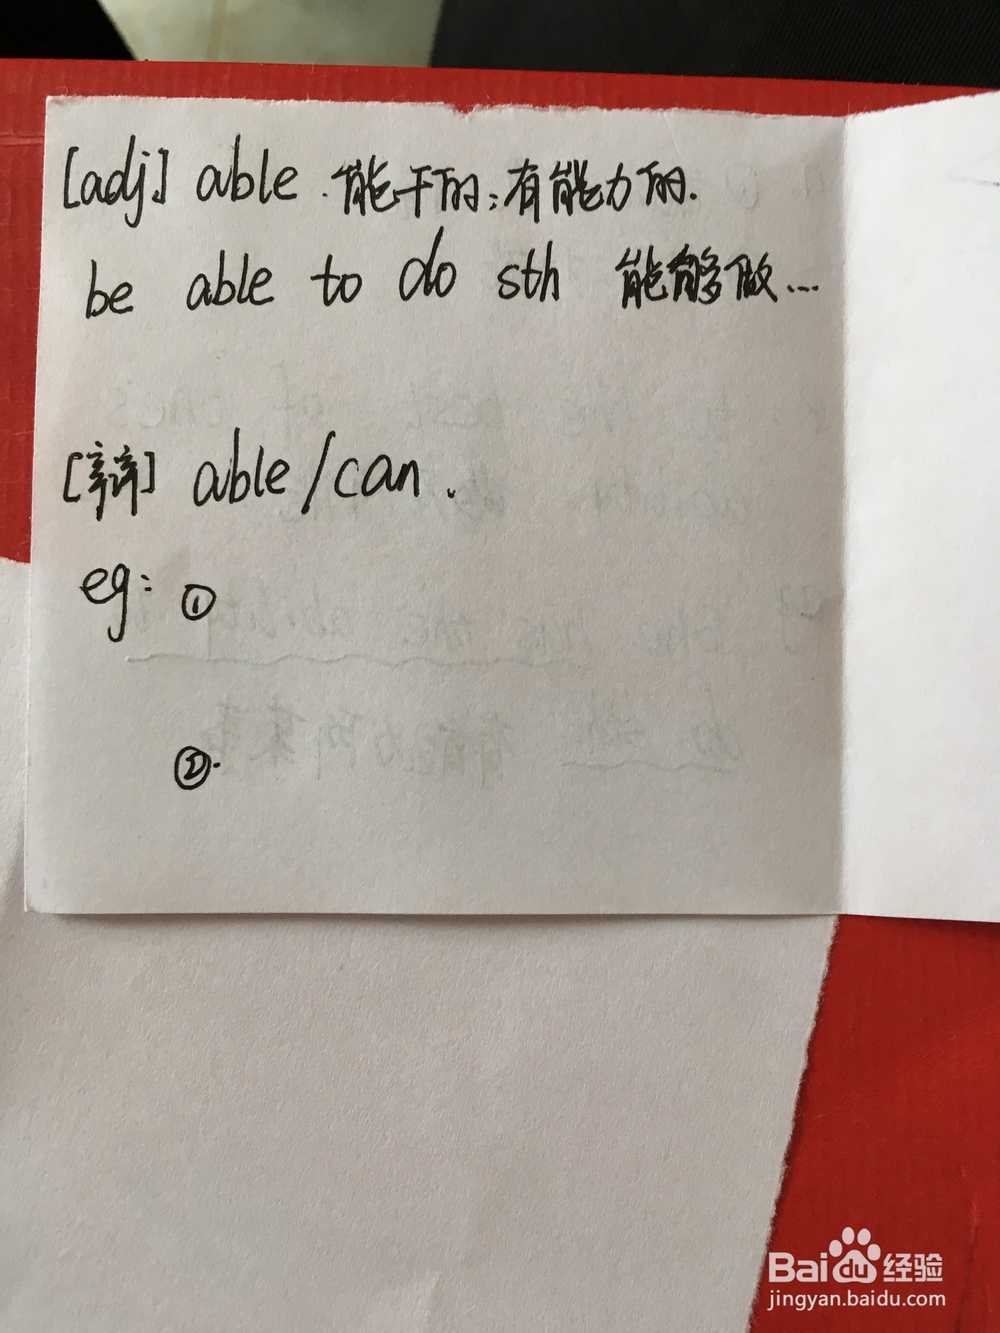 [adj] able . 能干的；有能力的.
be able to do sth 能够做...
[辨] able / can .
eg: ①
②.
Baidu 经验
jingyan.baidu.com